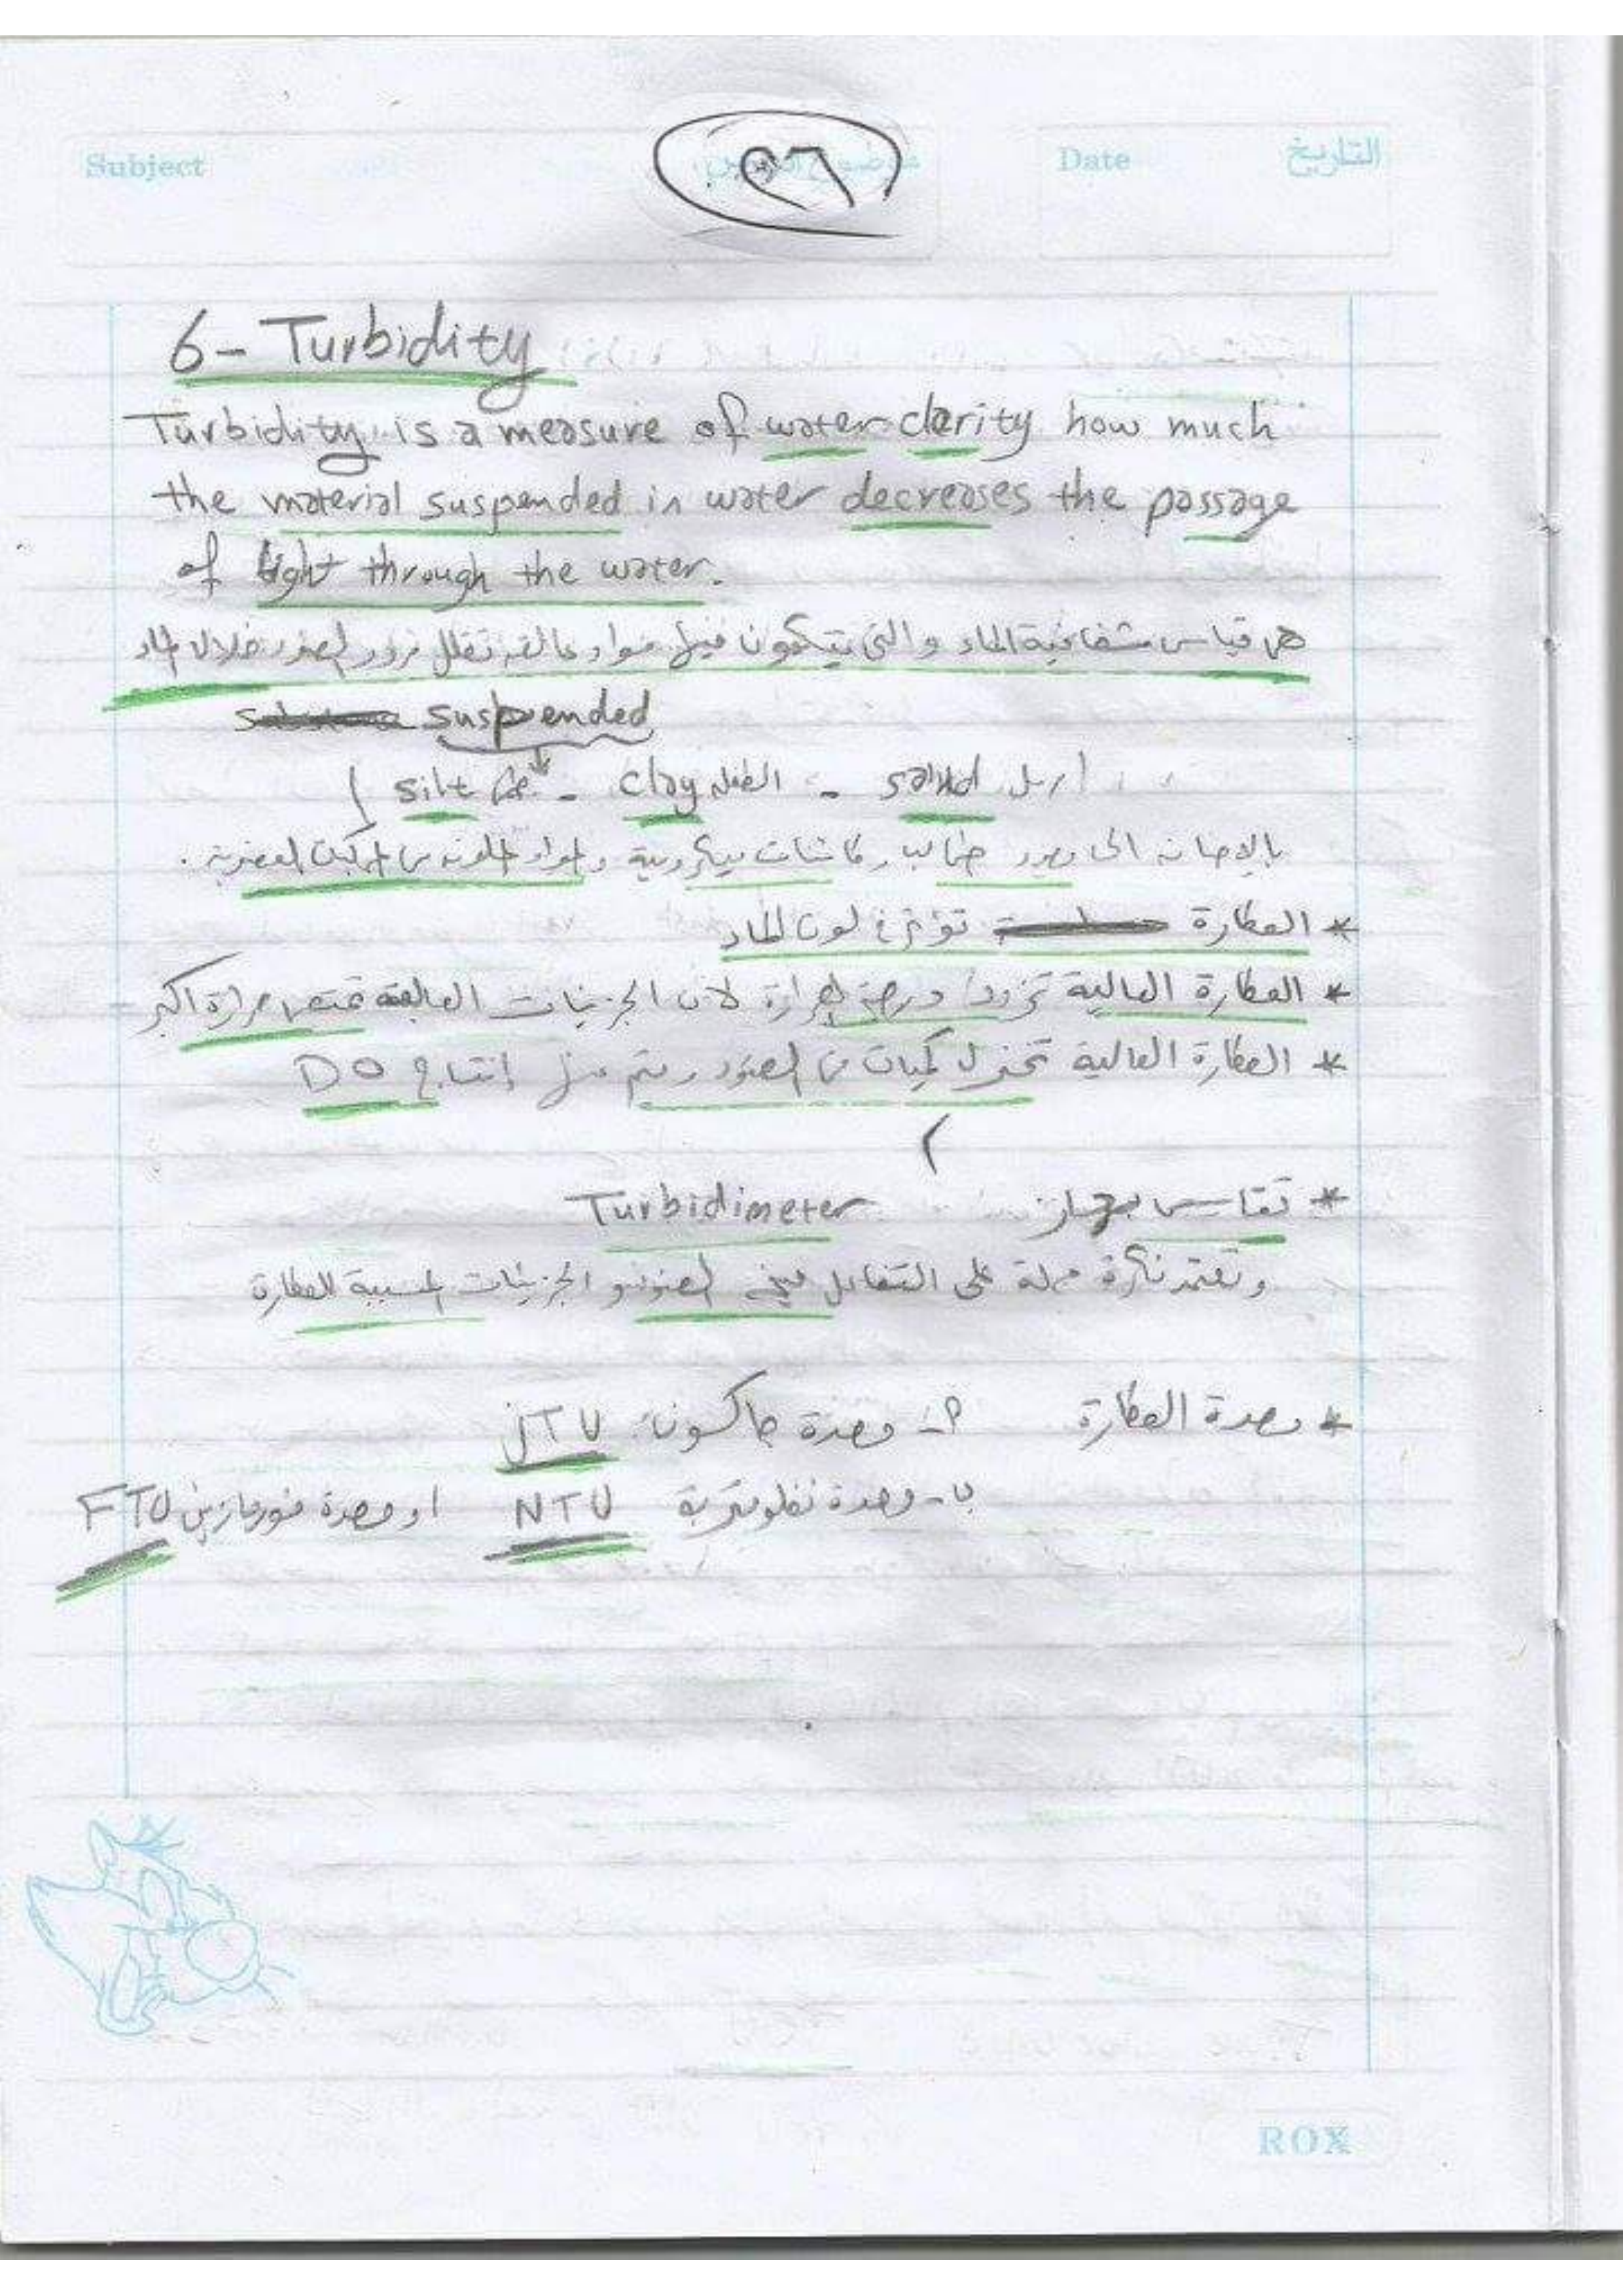 Subject
٢٦
Date التاريخ
6- Turbidity
Turbidity is a measure of water clarity how much
the material suspended in water decreases the passage
of light through the water.
هى قياس شفافية الماء والتى يتكون فيها مواد عالقة تقلل مرور الضوء خلال الماء
suspended
silt - clay الطفل - sand
بالإضافة الى وجود طحالب وكائنات ميكروبية والمواد الملونة من المركبات العضوية .
* العكارة تؤثر فى لون الماء
* العكارة العالية تزود درجة الحرارة لأن الجزيئات العالقة تمتص حرارة أكبر
* العكارة العالية تختزل كميات من الضوء إنتاج DO
* تقاس بجهاز Turbidimeter
وتعتمد فكرة عمله على التفاعل بين الضوء والجزيئات المسببة للعكارة
* وحدة العكارة أ- وحدة جاكسون JTU
ب- وحدة نفلومترية NTU او وحدة فورمازين FTU
ROX